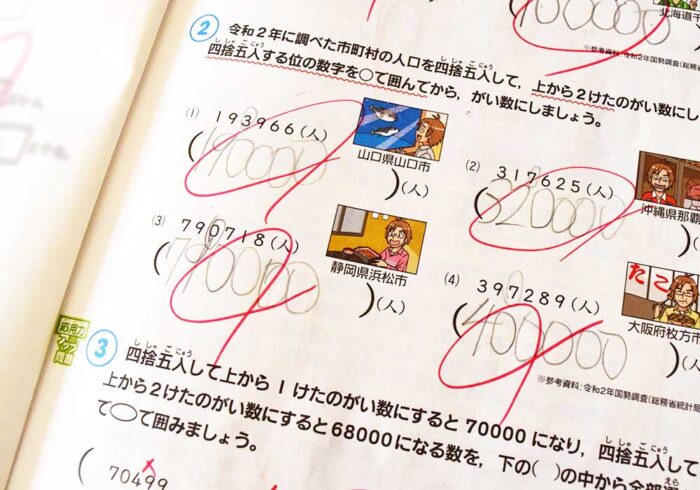 北海道千
00000
※参考資料:令和2年国勢調査(総務省
2
令和2年に調べた市町村の人口を四捨五入して,上から2けたのがい数にし
四捨五入する位の数字を○で囲んでから,がい数にしましょう。
(1) 193966(人)
山口県山口市
(190000)(人)
(2) 317625(人)
沖縄県那覇
(320000
(3) 790718(人)
静岡県浜松市
(790000)(人)
(4) 397289(人)
たこ
大阪府枚方市
(400000)(人)
※参考資料:令和2年国勢調査(総務省統計局
応用力
アップ
問題
3
四捨五入して上から1けたのがい数にすると70000になり,四捨五入して
上から2けたのがい数にすると68000になる数を,下の( )の中から全部
て○で囲みましょう。
( 70499